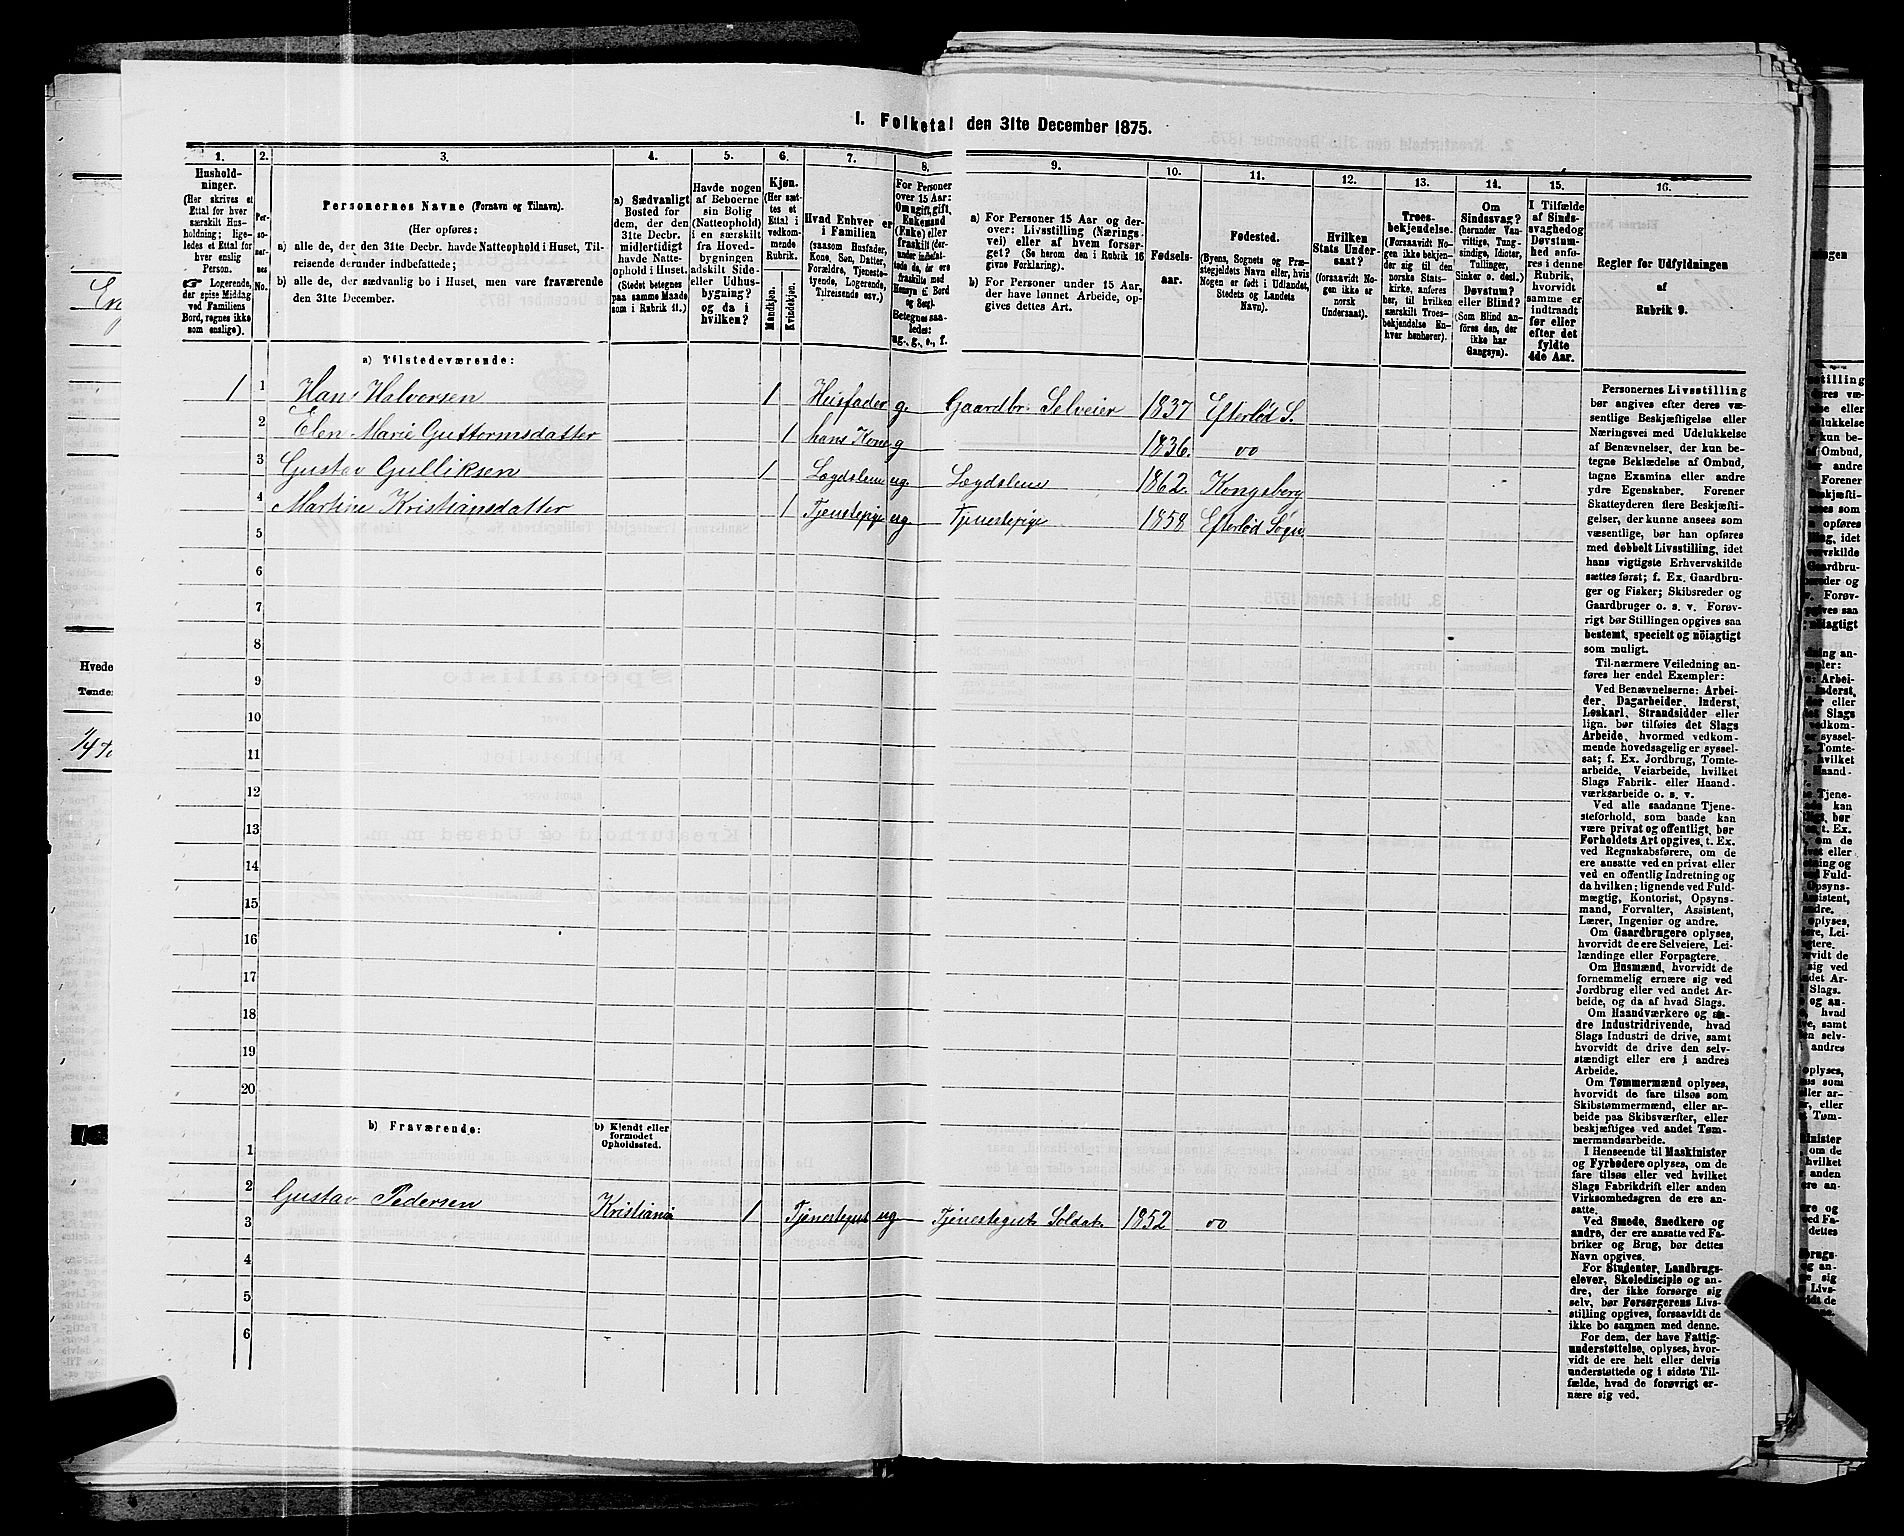 I. Folketal den 31te December 1875.
1. 2. 3. 4. 5. 6. 7. 8. 9. 10. 11. 12. 13. 14. 15. 16.
Hushold-
ninger.
(Her skrives et
Ettal for hver
særskilt Hus-
holdning; lige-
ledes et Ettal for
hver enslig
Person.
☞ Logerende,
der spise Middag
ved Familiens
Bord, regnes ikke
som enslige).
Per-
so-
ner-
nes
No.
Personernes Navne (Fornavn og Tilnavn).
(Her opføres:
a) alle de, der den 31te Decbr. havde Natteophold i Huset, Til-
reisende derunder indbefattede;
b) alle de, der sædvanlig bo i Huset, men vare fraværende
den 31te December.
a) Sædvanligt
Bosted for
dem, der den
31te Decbr.
midlertidigt
havde Natte-
ophold i Huset.
(Stedet betegnes
paa samme Maade
som i Rubrik 11.)
Havde nogen
af Beboerne
sin Bolig
(Natteophold)
i en særskilt
fra Hoved-
bygningen
adskilt Side-
eller Udhus-
bygning?
og da i
hvilken?
Kjøn.
(Her sæt-
tes et
Ettal i
vedkom-
mende
Rubrik.
Mandkjøn.
Kvindekjøn.
Hvad Enhver er
i Familien
(saasom Husfader,
Kone, Søn, Datter,
Forældre, Tjeneste-
tyende, Logerende,
Tilreisende osv.)
For Personer
over 15 Aar:
Om ugift, gift,
Enkemand
(Enke) eller
fraskilt (der-
under indbefat-
tede de, der ere
fraskilte med
Hensyn t. Bord
og Seng).
Betegnes saa-
ledes:
ug., g., e., f.
a) For Personer 15 Aar og der-
over: Livsstilling (Nærings-
vei) eller af hvem forsør-
get? (Se herom den i Rubrik 16
givne Forklaring).
b) For Personer under 15 Aar,
der have lønnet Arbeide, op-
gives dettes Art.
Fødsels-
aar.
Fødested.
(Byens, Sognets og Præ-
stegjeldets Navn eller, hvis
Nogen er født i Udlandet,
Stedets og Landets
Navn).
Hvilken
Stats Under-
saat?
(forsaavidt No-
gen ikke er
norsk
Undersaat).
Troes-
bekjendelse.
(Forsaavidt No-
gen ikke bekjen-
der sig til den
norske Stats-
kirke, anføres
her, til hvilken
særskilt Troes-
bekjendelse En-
hver henhører).
Om
Sindssvag?
(herunder Van-
vittige, Tung-
sindige, Idioter,
Tullinger,
Sinker o. desl.)
Døvstum?
eller Blind?
(Som Blind an-
føres den, der
ikke har
Gangsyn).
I Tilfælde
af Sinds-
svaghed og
Døvstum-
hed anfø-
res i denne
Rubrik,
hvorvidt
samme er
indtraadt
før eller
efter det
fyldte
4de Aar.
Regler for Udfyldningen
af
Rubrik 9.
a) Tilstedeværende:
1 1 Hans Halvorsen 1 Husfader g. Gaardbr. Selveier 1837 Efterlød S.
2 Elen Marie Guttormsdatter 1 hans Kone g 1836. oo
3 Gustav Gulliksen 1 Lægdslem ug. Lægdslem 1862. Kongsberg
4 Martine Kristiansdatter 1 Tjenestepige ug Tjenestepige 1858 Efterlød Sogn.
5
6
7
8
9
10
11
12
13
14
15
16
17
18
19
20
b) Fraværende: b) Kjendt eller
formodet
Opholdssted.
1
2 Gustav Pedersen Kristiania 1 Tjenestegut ug Tjenestegut Soldat. 1852 oo
3
4
5
6
Personernes Livsstilling
bør angives efter deres væ-
sentlige Beskjæftigelse eller
Næringsvei med Udelukkelse
af Benævnelser, der kun be-
tegne Beklædelse af Ombud,
tagne Examina eller andre
ydre Egenskaber. Forener
Skatteyderen flere Beskjæfti-
gelser, der kunne ansees som
væsentlige, bør han opføres
med dobbelt Livsstilling, idet
hans vigtigste Erhvervskilde
sættes først; f. Ex. Gaardbru-
ger og Fisker; Skibsreder og
Gaardbruger o. s. v. Forøv-
rigt bør Stillingen opgives saa
bestemt, specielt og nöiagtigt
som muligt.
Til nærmere Veiledning an-
føres her endel Exempler:
Ved Benævnelserne: Arbei-
der, Dagarbeider, Inderst,
Løskarl, Strandsidder eller
lign. bør tilføies det Slags
Arbeide, hvormed vedkom-
mende hovedsagelig er syssel-
sat; f. Ex. Jordbrug, Tomte-
arbeide, Veiarbeide, hvilket
Slags Fabrik- eller Haand-
værksarbeide o. s. v.
Ved alle saadanne Tjene-
steforhold, som baade kan
være privat og offentligt, bør
Forholdets Art opgives, t. Ex.
ved Regnskabsførere, om de
ere ansatte ved en privat eller
ved en offentlig Indretning og
da hvilken; lignende ved Fuld-
mægtig, Kontorist, Opsyns-
mand, Forvalter, Assistent,
Lærer, Ingeniør og andre.
Om Gaardbrugere oplyses,
hvorvidt de ere Selveiere, Lei-
lændinge eller Forpagtere.
Om Husmænd, hvorvidt de
fornemmelig ernære sig ved
Jordbrug eller ved andet Ar-
beide, og da af hvad Slags.
Om Haandværkere og an-
dre Industridrivende, hvad
Slags Industri de drive, samt
hvorvidt de drive den selv-
stændigt eller ere i andres
Arbeide.
Om Tømmermænd oplyses,
hvorvidt de fare tilsøs som
Skibstømmermænd, eller ar-
beide paa Skibsværfter, eller
beskjæftiges ved andet Tøm-
mermandsarbeide.
I Henseende til Maskinister
og Fyrbødere oplyses, om de
fare tilsøs eller ved hvilket
Slags Fabrikdrift eller anden
Virksomhedsgren de ere an-
satte.
Ved Smede, Snedkere og
andre, der ere ansatte ved Fa-
briker og Brug, bør dettes
Navn opgives.
For Studenter, Landbrugs-
elever, Skoledisciple og an-
dre, der ikke forsørge sig
selv, bør Forsørgerens Livs-
stilling opgives, forsaavidt de
ikke bo sammen med denne.
For dem, der have Fattig-
understøttelse, oplyses, hvor-
vidt de ere helt eller delvis
understøttede og i sidste Til-
fælde, hvad de forøvrigt er-
nære sig ved.
Hvede
Tønder